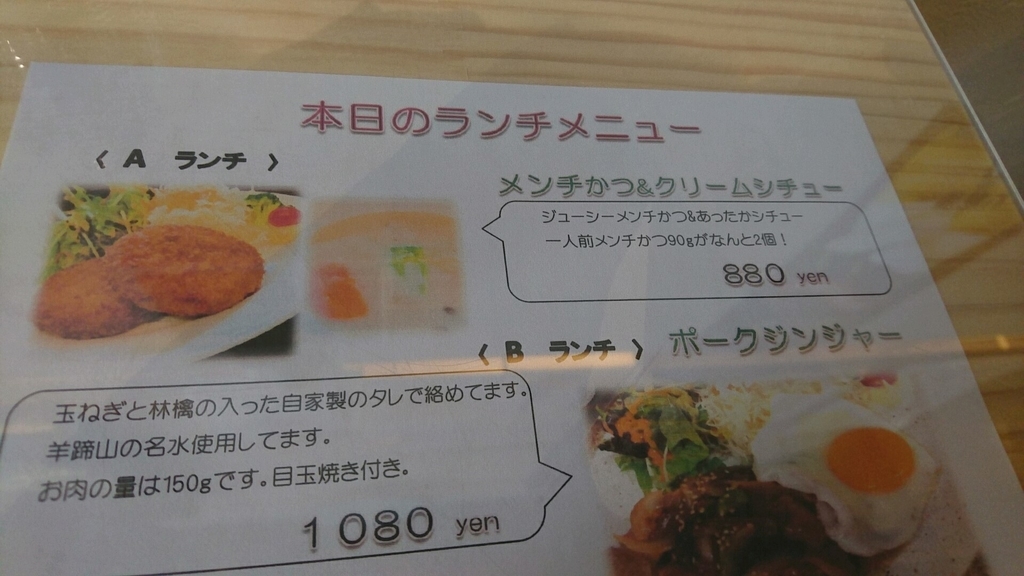 本日のランチメニュー
〈 A ランチ 〉
メンチかつ&クリームシチュー
ジューシーメンチかつ&あったかシチュー
一人前メンチかつ90gがなんと2個！
880 yen
〈 B ランチ 〉 ポークジンジャー
玉ねぎと林檎の入った自家製のタレで絡めてます。
羊蹄山の名水使用してます。
お肉の量は150gです。目玉焼き付き。
1080 yen